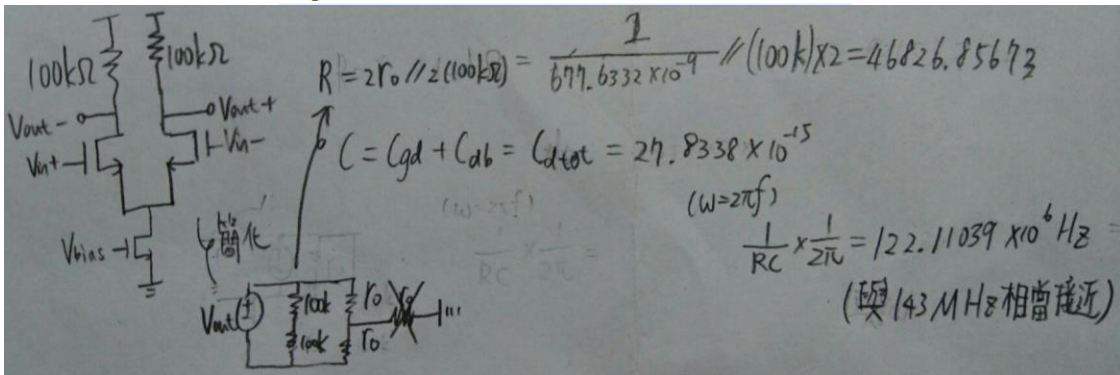 100kΩ
100kΩ
Vout-
Vout+
Vin+
Vin-
Vbias
簡化
Vout
100k
100k
ro
ro
R = 2ro // 2(100kΩ) = 1 / 677.6332×10^-9 // (100k)×2 = 46826.85673
C = Cgd + Cdb = Cdtot = 27.8338×10^-15
(ω=2πf)
1/RC × 1/2π = 122.11039×10^6 Hz
(與143MHz相當接近)